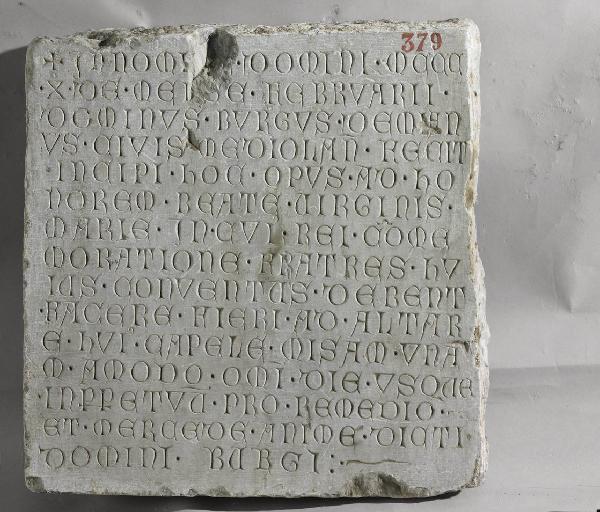 379
+ IN NOMI · DOMINI · MCCC
X · DE · MENSE · FEBRVARII ·
DOMINVS · BVRGVS · DEMEN
VS · CIVIS · MEDIOLAN · FECIT
INCIPI · HOC · OPVS · AD · HO
NOREM · BEATE · VIRGINIS
MARIE · IN CVI · REI · COME
MORATIONE · FRATRES · HV
IUS · CONVENTUS · DEBENT
FACERE · FIERI · AD · ALTAR
E · HVI · CAPELE · MISAM · VNA
M · AMODO · OMI · DIE · VSQUE
INPPETVU · PRO · REMEDIO ·
ET · MERCEDE · ANIME · DICTI ·
DOMINI · BURGI :